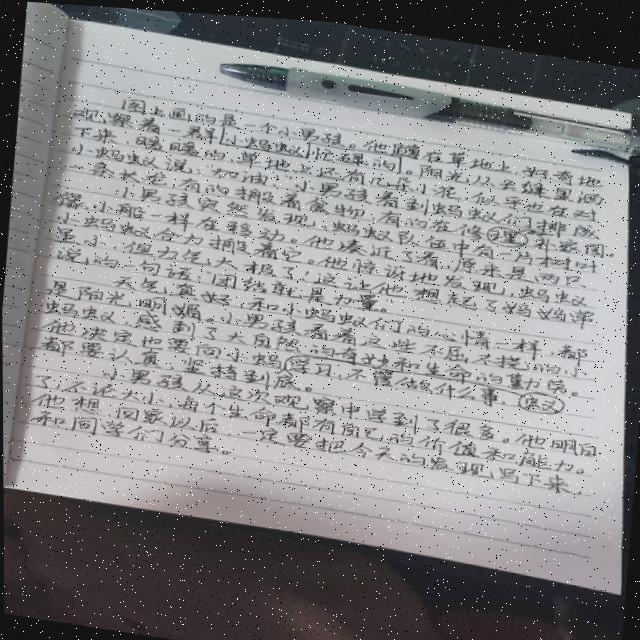 图上画的是一个小男孩。他蹲在草地上，好奇地
观察着一群小蚂蚁忙碌的。阳光从云缝里洒
下来，暖暖的，草地上还有几朵小花，似乎也在对
小蚂蚁说，加油。小男孩看到蚂蚁们排成
一条长龙，有的搬着食物，有的在修
小男孩突然发现，蚂蚁队伍中有一片树叶
像小船一样在移动。他凑近了看，原来是两只
小蚂蚁合力搬着它。他惊讶地发现，蚂蚁
虽小，但力气大极了，这让他想起了妈妈常
说的一句话：团结就是力量。
天气真好，和小蚂蚁们的心情一样，都
是阳光明媚。小男孩看着这些不屈不挠的小
蚂蚁，感到了大自然的奇妙和生命的勤劳。
他决定也要向小蚂蚁学习，不管做什么事，
都要认真，坚持到底。
小男孩从这次观察中学到了很多。他明白
了，不论大小，每个生命都有自己的价值和能力。
他想，回家以后，一定要把今天的发现写下来，
和同学们分享。